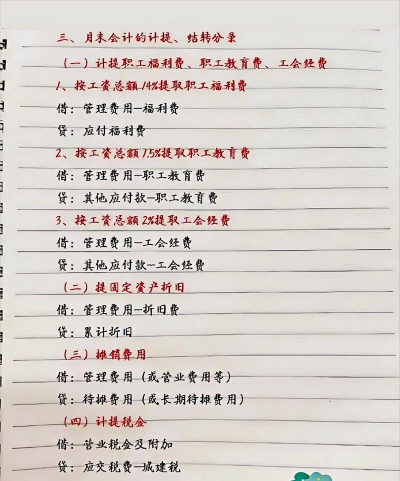 三、月末会计的计提、结转分录
（一）计提职工福利费、职工教育费、工会经费
1、按工资总额14%提取职工福利费
借：管理费用—福利费
贷：应付福利费
2、按工资总额1.5%提取职工教育费
借：管理费用—职工教育费
贷：其他应付款—职工教育费
3、按工资总额2%提取工会经费
借：管理费用—工会经费
贷：其他应付款—工会经费
（二）提固定资产折旧
借：管理费用—折旧费
贷：累计折旧
（三）摊销费用
借：管理费用（或管业费用等）
贷：待摊费用（或长期待摊费用）
（四）计提税金
借：管业税金及附加
贷：应交税费—城建税